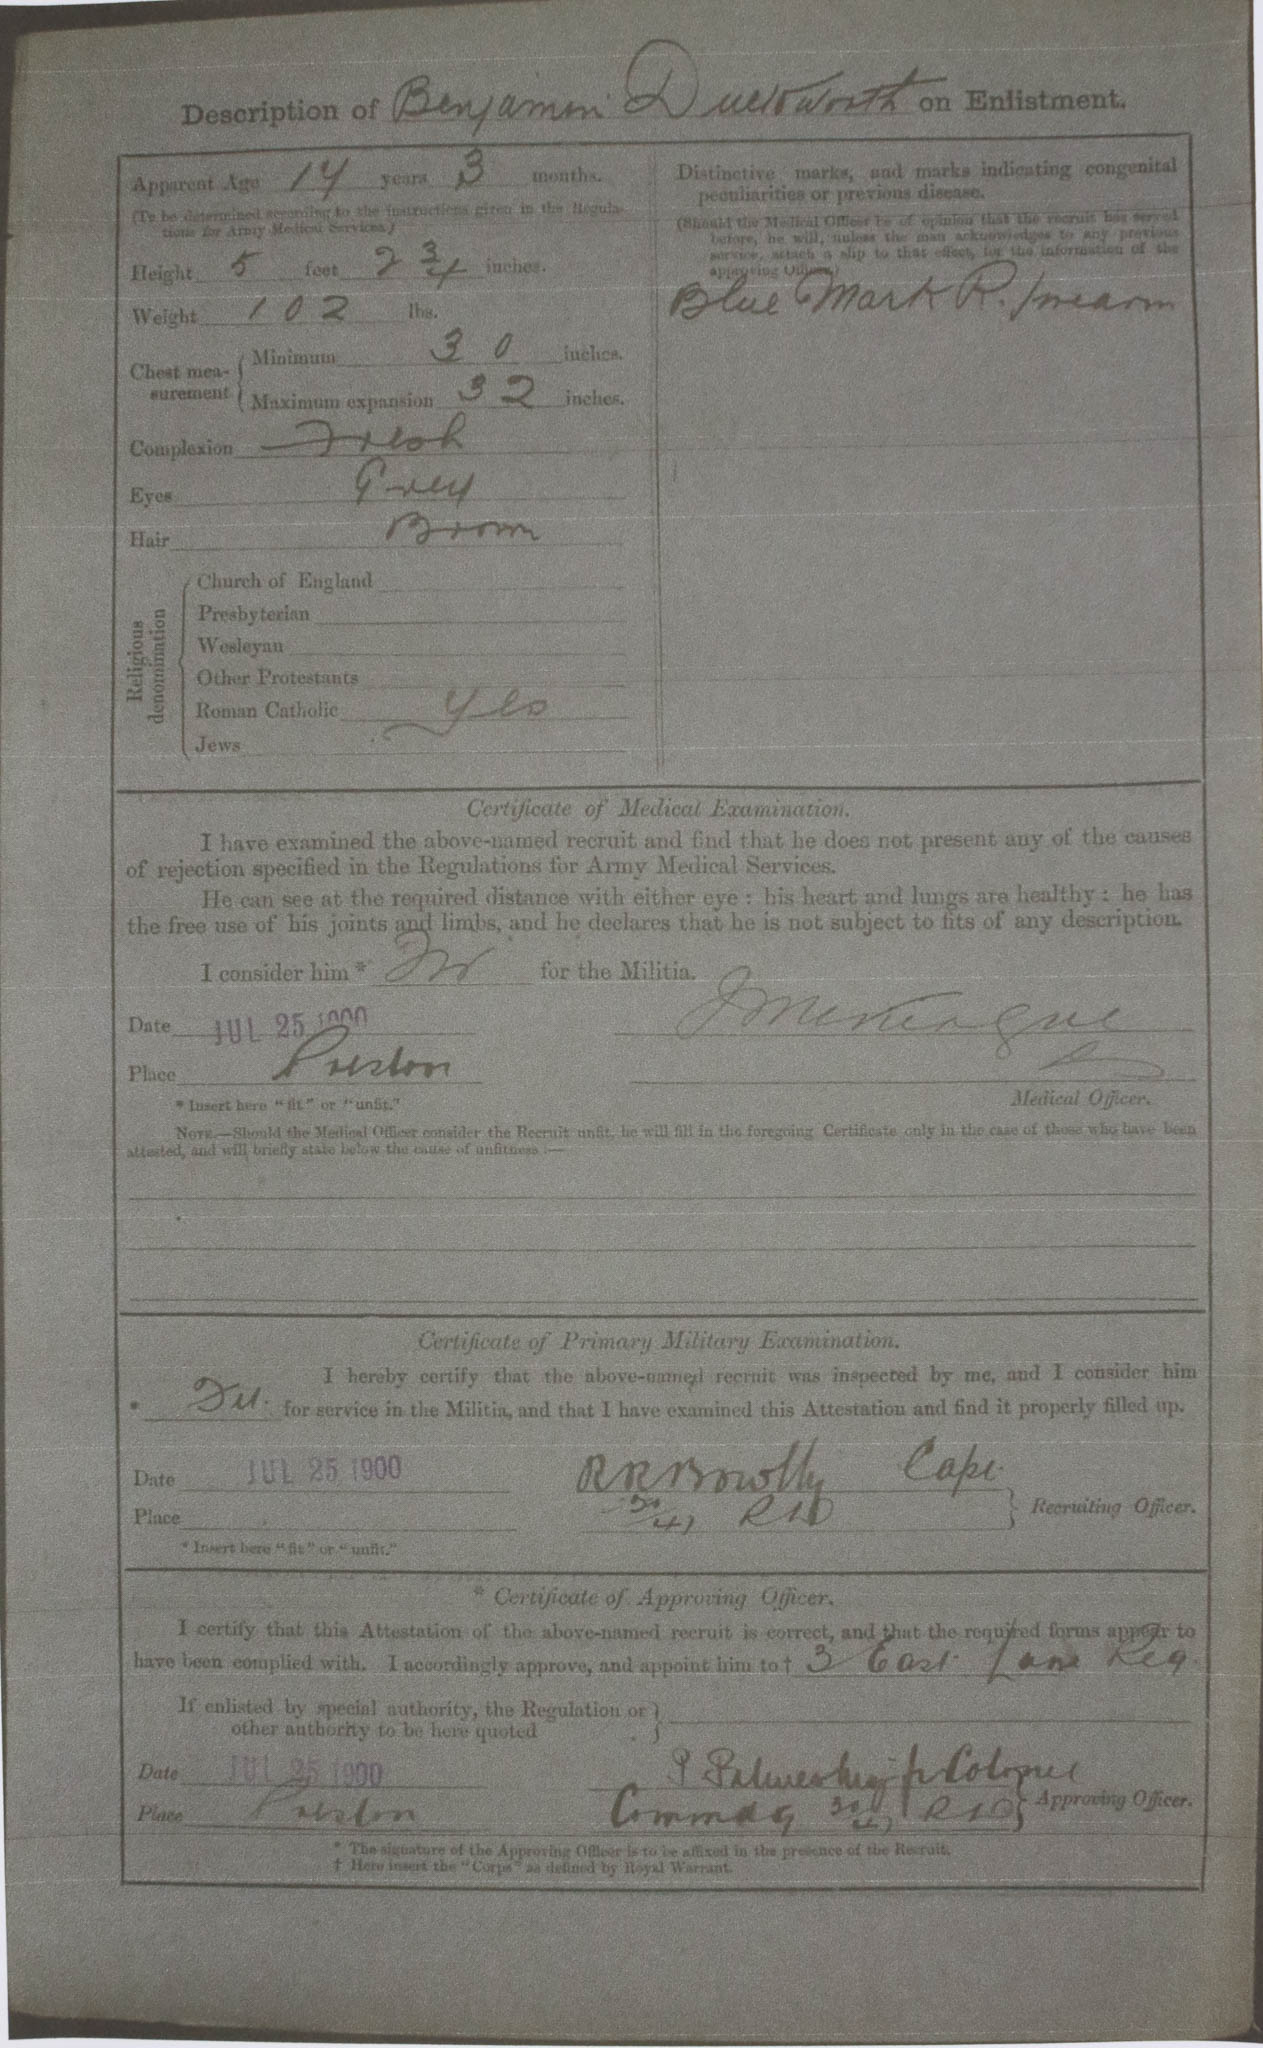 Description of Benjamin Duckworth on Enlistment.
Apparent Age 17 years 3 months.
(To be determined according to the instructions given in the Regula-
tions for Army Medical Services.)
Height 5 feet 2 3/4 inches.
Weight 102 lbs.
Chest mea-
surement
Minimum 30 inches.
Maximum expansion 32 inches.
Complexion Fresh
Eyes Grey
Hair Brown
Religious
denomination
Church of England
Presbyterian
Wesleyan
Other Protestants
Roman Catholic Yes
Jews
Distinctive marks, and marks indicating congenital
peculiarities or previous disease.
(Should the Medical Officer be of opinion that the recruit has served
before, he will, unless the man acknowledges to any previous
service, attach a slip to that effect, for the information of the
approving Officer.)
Blue Mark R. forearm
Certificate of Medical Examination.
I have examined the above-named recruit and find that he does not present any of the causes
of rejection specified in the Regulations for Army Medical Services.
He can see at the required distance with either eye: his heart and lungs are healthy: he has
the free use of his joints and limbs, and he declares that he is not subject to fits of any description.
I consider him * for the Militia.
Date JUL 25 1900
Place Preston
Medical Officer.
* Insert here "fit" or "unfit."
NOTE.—Should the Medical Officer consider the Recruit unfit, he will fill in the foregoing Certificate only in the case of those who have been
attested, and will briefly state below the cause of unfitness:—
Certificate of Primary Military Examination.
I hereby certify that the above-named recruit was inspected by me, and I consider him
* Fit. for service in the Militia, and that I have examined this Attestation and find it properly filled up.
Date JUL 25 1900 Capt.
Place
Recruiting Officer.
* Insert here "fit" or "unfit."
* Certificate of Approving Officer.
I certify that this Attestation of the above-named recruit is correct, and that the required forms appear to
have been complied with. I accordingly approve, and appoint him to † 3 East Lanc Reg.
If enlisted by special authority, the Regulation or
other authority to be here quoted
Date JUL 25 1900 Colonel
Place Preston Commdg RD Approving Officer.
* The signature of the Approving Officer is to be affixed in the presence of the Recruit.
† Here insert the "Corps" as defined by Royal Warrant.